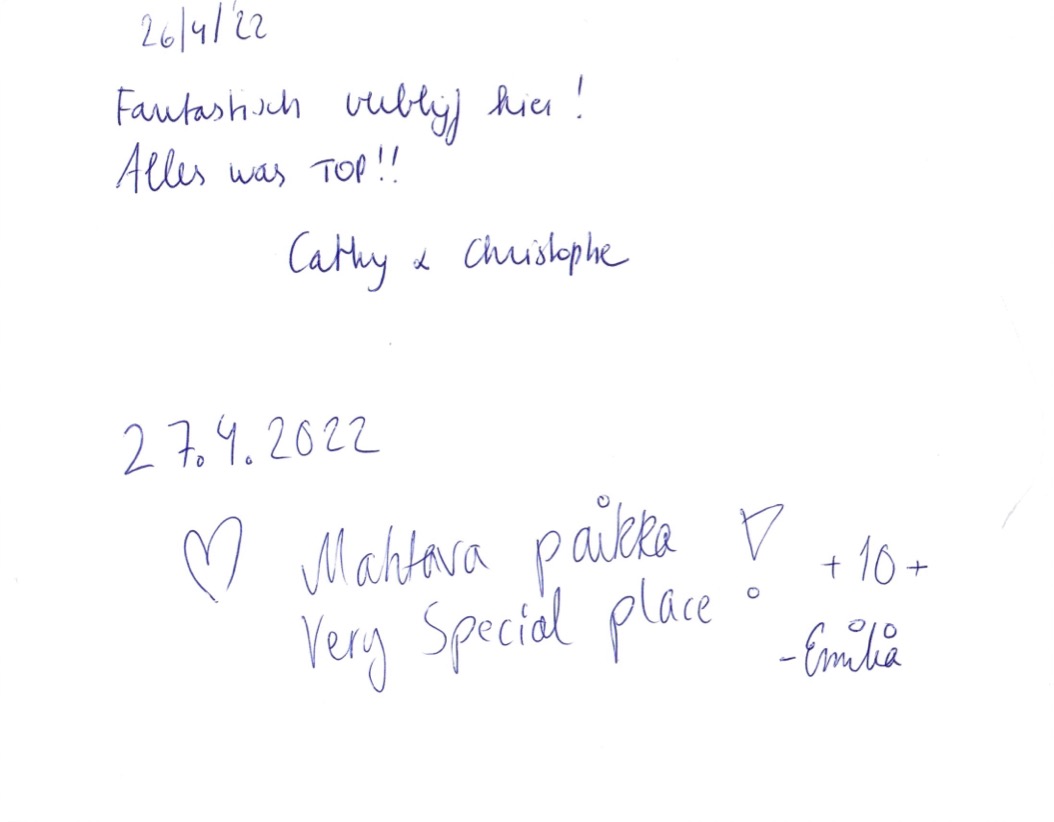 26/4/'22
Fantastisch verblijf hier!
Alles was TOP!!
Cathy & Christophe
27.4.2022
♡ Mahtava paikka !
Very Special place
+10+
-Emilia